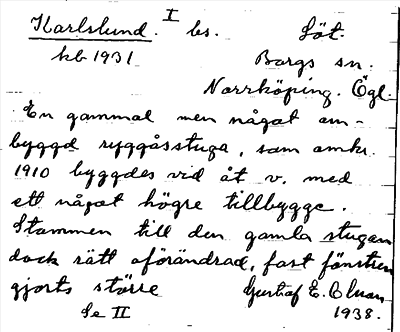 Karlslund. I bs. Löt.
kb 1931 Borgs sn.
Norrköping. Ögl.
En gammal men något om-
byggd ryggåsstuga, som omkr.
1910 byggdes vid åt v. med
ett något högre tillbygge.
Stommen till den gamla stugan
dock rätt oförändrad, fast fönstren
gjorts större Gustaf E. Cluan
Se II 1938.